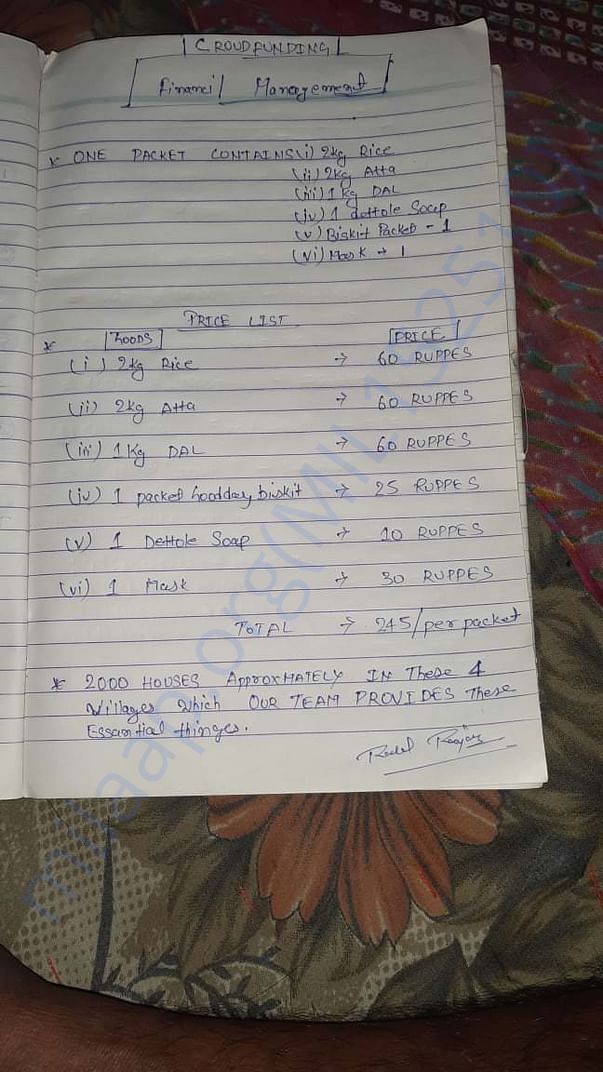 CROUDFUNDING
Financil Management
* ONE PACKET CONTAINS(i) 2kg Rice
(ii) 2kg Atta
(iii) 1 kg DAL
(iv) 1 dettole Soap
(v) Biskit Packet - 1
(vi) Mask → 1
PRICE LIST
* GOODS PRICE
(i) 2kg Rice → 60 RUPPES
(ii) 2kg Atta → 60 RUPPES
(iii) 1 Kg DAL → 60 RUPPES
(iv) 1 packet goodday biskit → 25 RUPPES
(v) 1 Dettole Soap → 10 RUPPES
(vi) 1 Mask → 30 RUPPES
TOTAL → 245/per packet
* 2000 HOUSES ApproxMATELY IN These 4
Villages which OUR TEAM PROVIDES These
Essantial thinges.